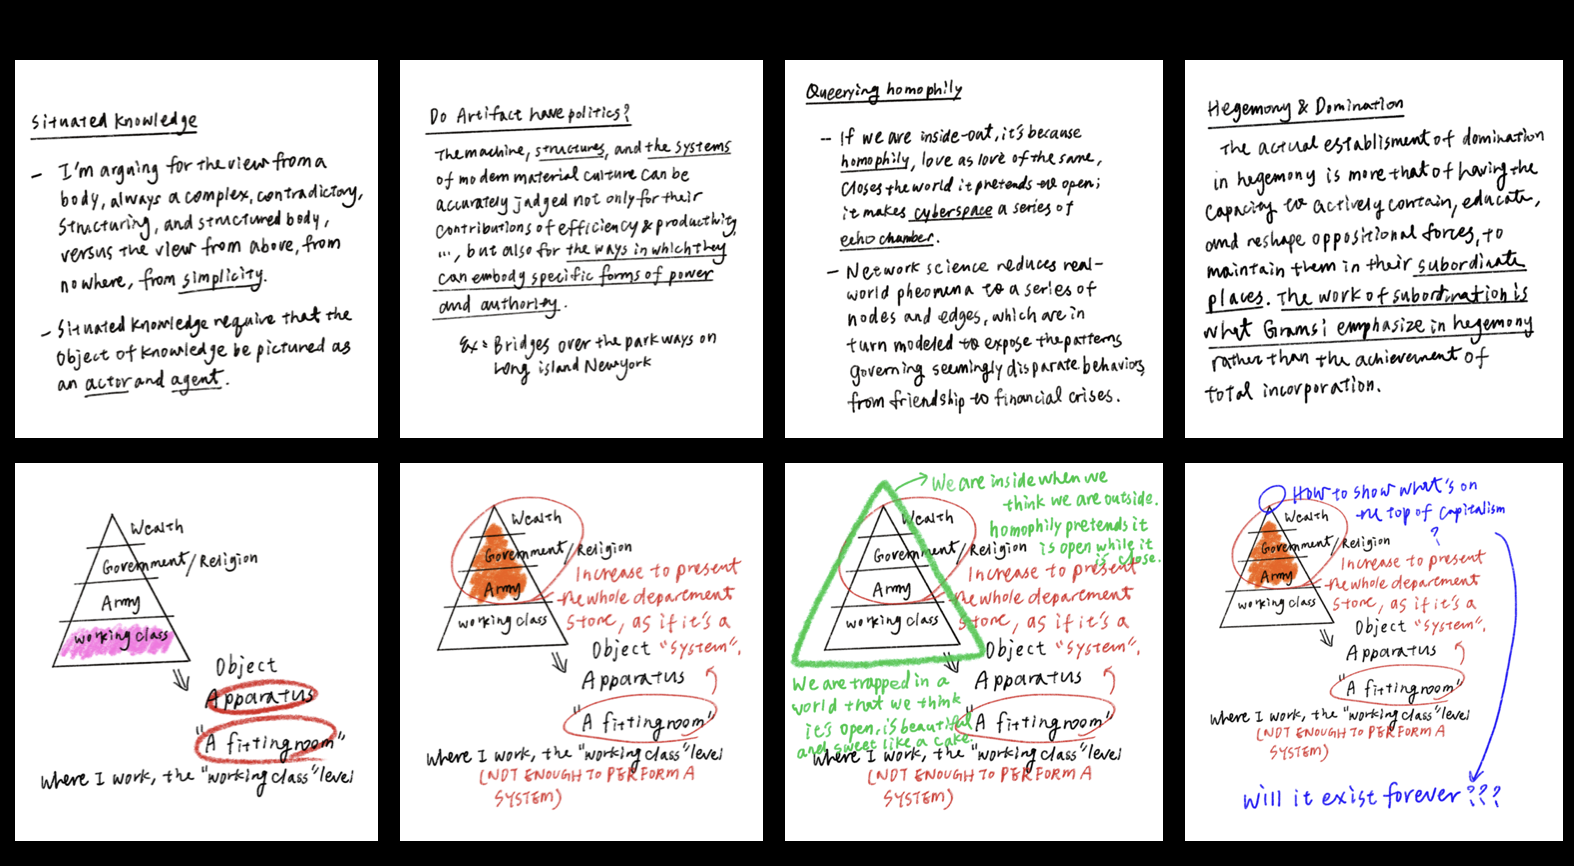 Situated Knowledge
- I'm arguing for the view from a
body, always a complex, contradictory,
structuring, and structured body,
versus the view from above, from
nowhere, from simplicity.
- Situated Knowledge require that the
object of knowledge be pictured as
an actor and agent.
Do Artifact have politics?
The machine, structures, and the systems
of modern material culture can be
accurately judged not only for their
contributions of efficiency & productivity
..., but also for the ways in which they
can embody specific forms of power
and authority.
Ex: Bridges over the parkways on
Long island New York
Queerying homophily
- If we are inside-out, it's because
homophily, love as love of the same,
closes the world it pretends to open;
it makes cyberspace a series of
echo chamber.
- Network science reduces real-
world pheomena to a series of
nodes and edges, which are in
turn modeled to expose the patterns
governing seemingly disparate behaviors,
from friendship to financial crises.
Hegemony & Domination
The actual establisment of domination
in hegemony is more that of having the
capacity to actively contain, educate,
and reshape oppositional forces, to
maintain them in their subordinate
places. The work of subordination is
what Gramsi emphasize in hegemony
rather than the achievement of
total incorporation.
Wealth
Government/Religion
Army
working class
Object
Apparatus
"A fitting room"
where I work, the "working class" level
Wealth
Government/Religion
Army
working class
Increase to present
the whole department
store, as if it's a
Object "System".
Apparatus
"A fitting room"
where I work, the "working class" level
(NOT ENOUGH TO PERFORM A
SYSTEM)
We are inside when we
think we are outside.
homophily pretends it
is open while it
is close.
Wealth
Government/Religion
Army
working class
Increase to present
the whole department
store, as if it's a
Object "System".
Apparatus
"A fitting room"
We are trapped in a
world that we think
it's open, is beautiful
and sweet like a cake.
where I work, the "working class" level
(NOT ENOUGH TO PERFORM A
SYSTEM)
How to show what's on
the top of capitalism
?
Wealth
Government/Religion
Army
working class
Increase to present
the whole department
store, as if it's a
Object "System".
Apparatus
"A fitting room"
where I work, the "working class" level
(NOT ENOUGH TO PERFORM A
SYSTEM)
will it exist forever???